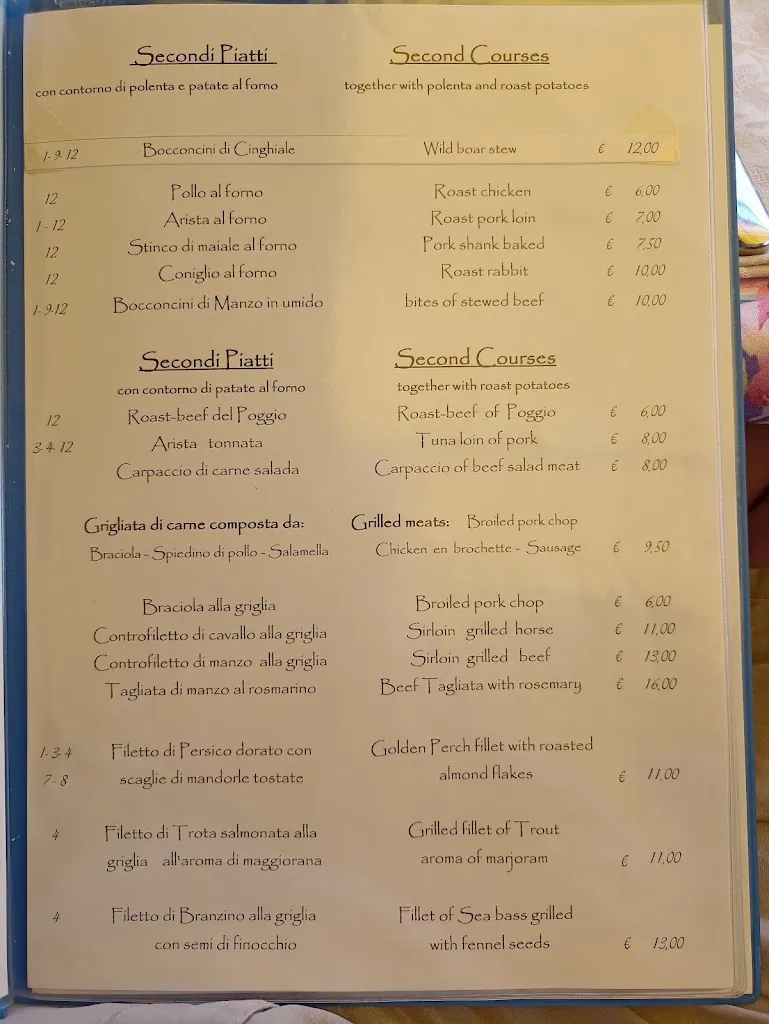 Secondi Piatti Second Courses
con contorno di polenta e patate al forno together with polenta and roast potatoes
1-9-12 Bocconcini di Cinghiale Wild boar stew € 12,00
12 Pollo al forno Roast chicken € 6,00
1-12 Arista al forno Roast pork loin € 7,00
12 Stinco di maiale al forno Pork shank baked € 7,50
12 Coniglio al forno Roast rabbit € 10,00
1-9-12 Bocconcini di Manzo in umido bites of stewed beef € 10,00
Secondi Piatti Second Courses
con contorno di patate al forno together with roast potatoes
12 Roast-beef del Poggio Roast-beef of Poggio € 6,00
3-4-12 Arista tonnata Tuna loin of pork € 8,00
Carpaccio di carne salada Carpaccio of beef salad meat € 8,00
Grigliata di carne composta da: Grilled meats: Broiled pork chop
Braciola - Spiedino di pollo - Salamella Chicken en brochette - Sausage € 9,50
Braciola alla griglia Broiled pork chop € 6,00
Controfiletto di cavallo alla griglia Sirloin grilled horse € 11,00
Controfiletto di manzo alla griglia Sirloin grilled beef € 13,00
Tagliata di manzo al rosmarino Beef Tagliata with rosemary € 16,00
1-3-4 Filetto di Persico dorato con Golden Perch fillet with roasted
7-8 scaglie di mandorle tostate almond flakes € 11,00
4 Filetto di Trota salmonata alla Grilled fillet of Trout
griglia all'aroma di maggiorana aroma of marjoram € 11,00
4 Filetto di Branzino alla griglia Fillet of Sea bass grilled
con semi di finocchio with fennel seeds € 13,00